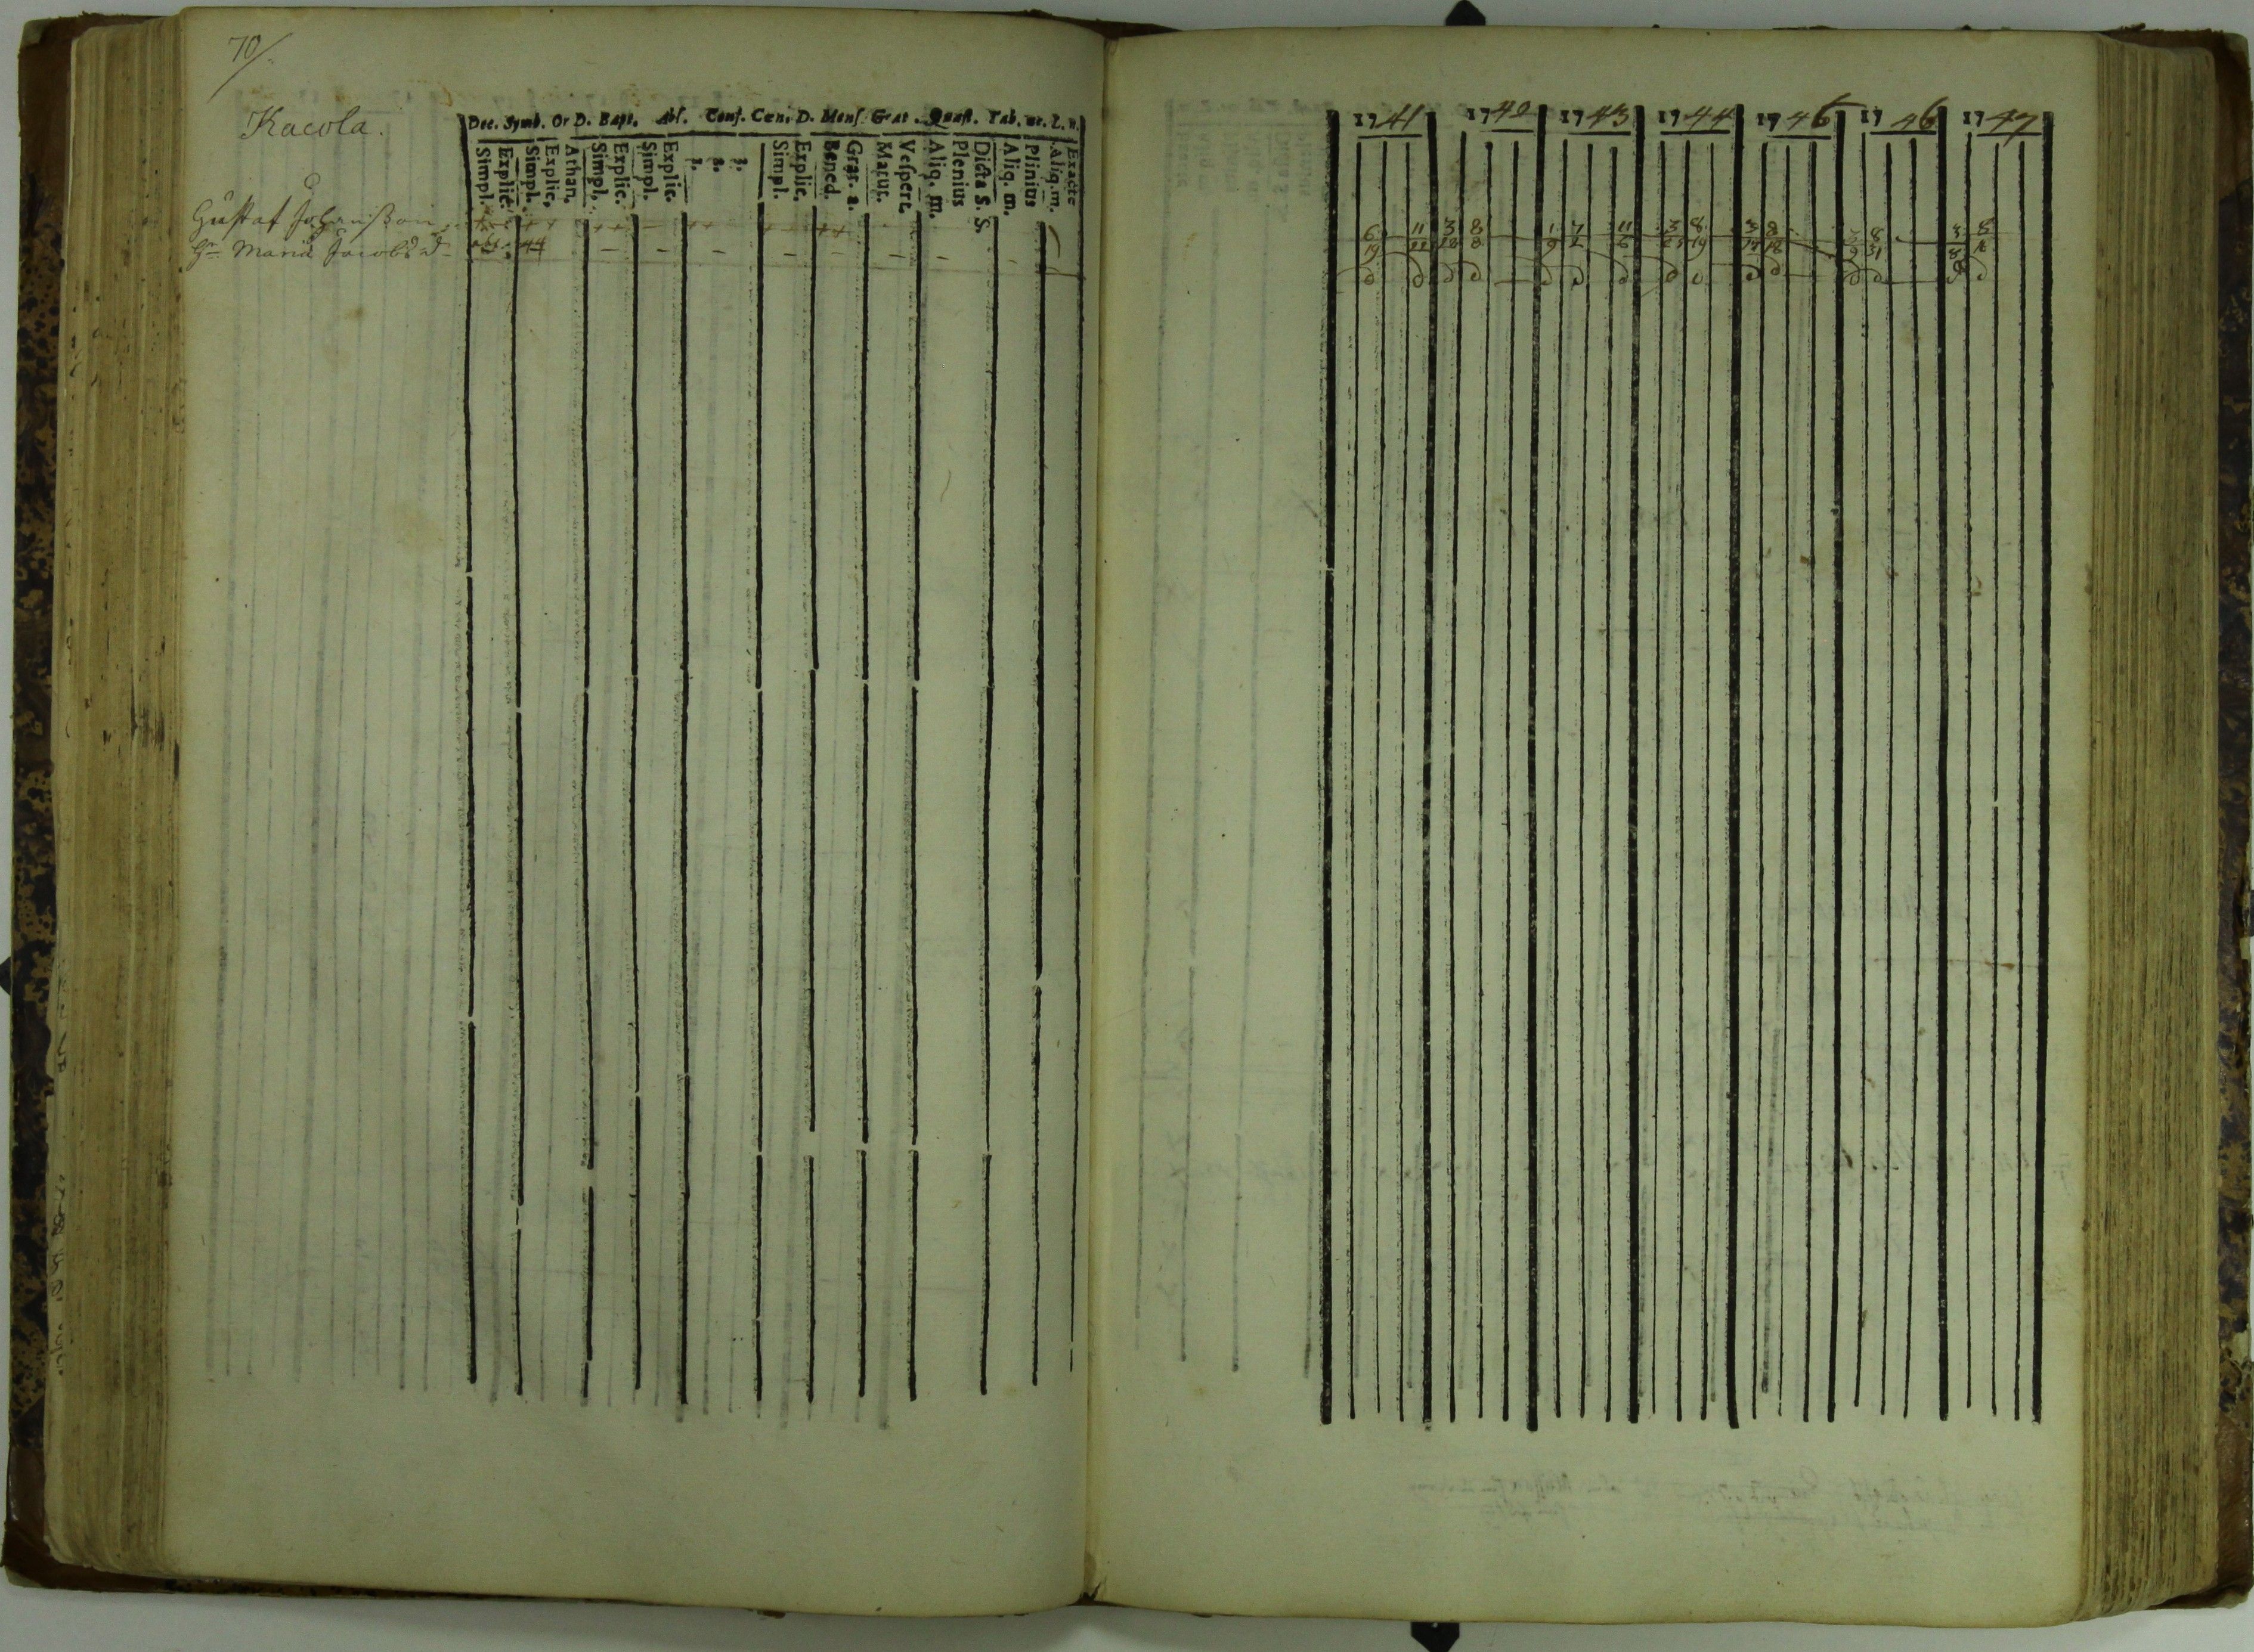 70/.
Kacola.
Dec. Symb. Or D. Bapt. Abs. Conf. Cœn. D. Mens. Grat. Quæst. Tab. œc. L. n.
Simpl. Explic. Simpl. Explic. Athan. Simpl. Explic. Simpl. Explic. 1. 2. 3. Simpl. Explic. Bened. Grat. a. Matut. Veſpert. Aliq. m. Plenius Dicta S. S. Aliq. m. Plinius Aliq. m. Exacte
Gustaf Johansson
Hu Maria Jacobs d.
1741 1742 1743 1744 1745 1746 1747
6 11 3 8 1 7 11 3 8 3 8 3 8 3 8
19 22 28 8 9 2 6 25 19 17 18